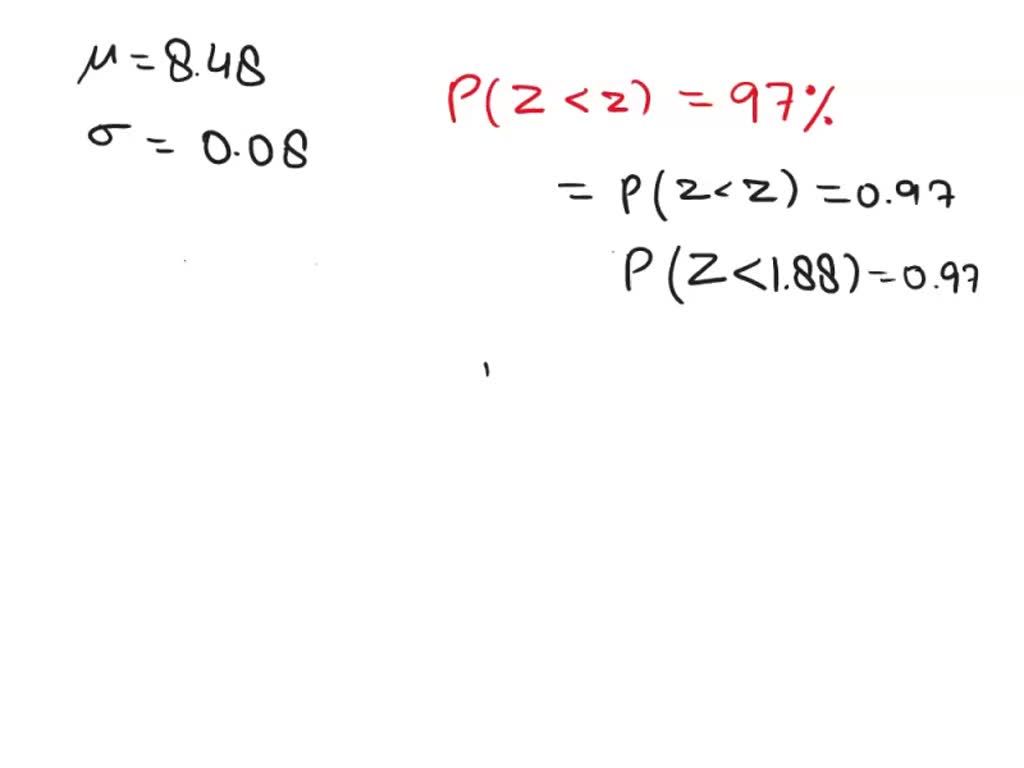 μ = 8.48
σ = 0.08
P(Z < z) = 97%
= P(z < z) = 0.97
P(Z < 1.88) = 0.97